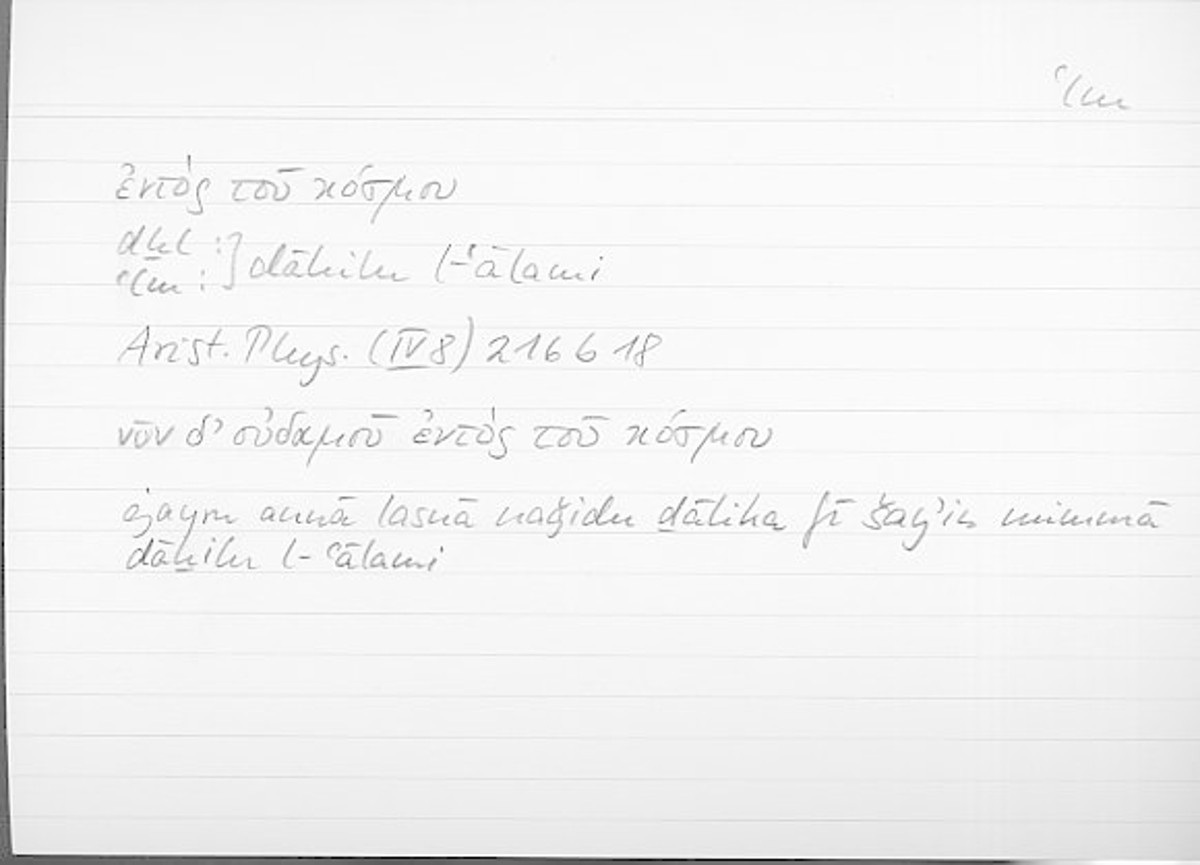 ʿlm
ἐντὸς τοῦ κόσμου
dḫl :
ʿlm : } dāḫilu l-ʿālami
Arist. Phys. (IV 8) 216 b 18
νῦν δ' οὐδαμοῦ ἐντὸς τοῦ κόσμου
ġayra annā lasnā naǧidu ḏālika fī šayʾin mimmā
dāḫilu l-ʿālami